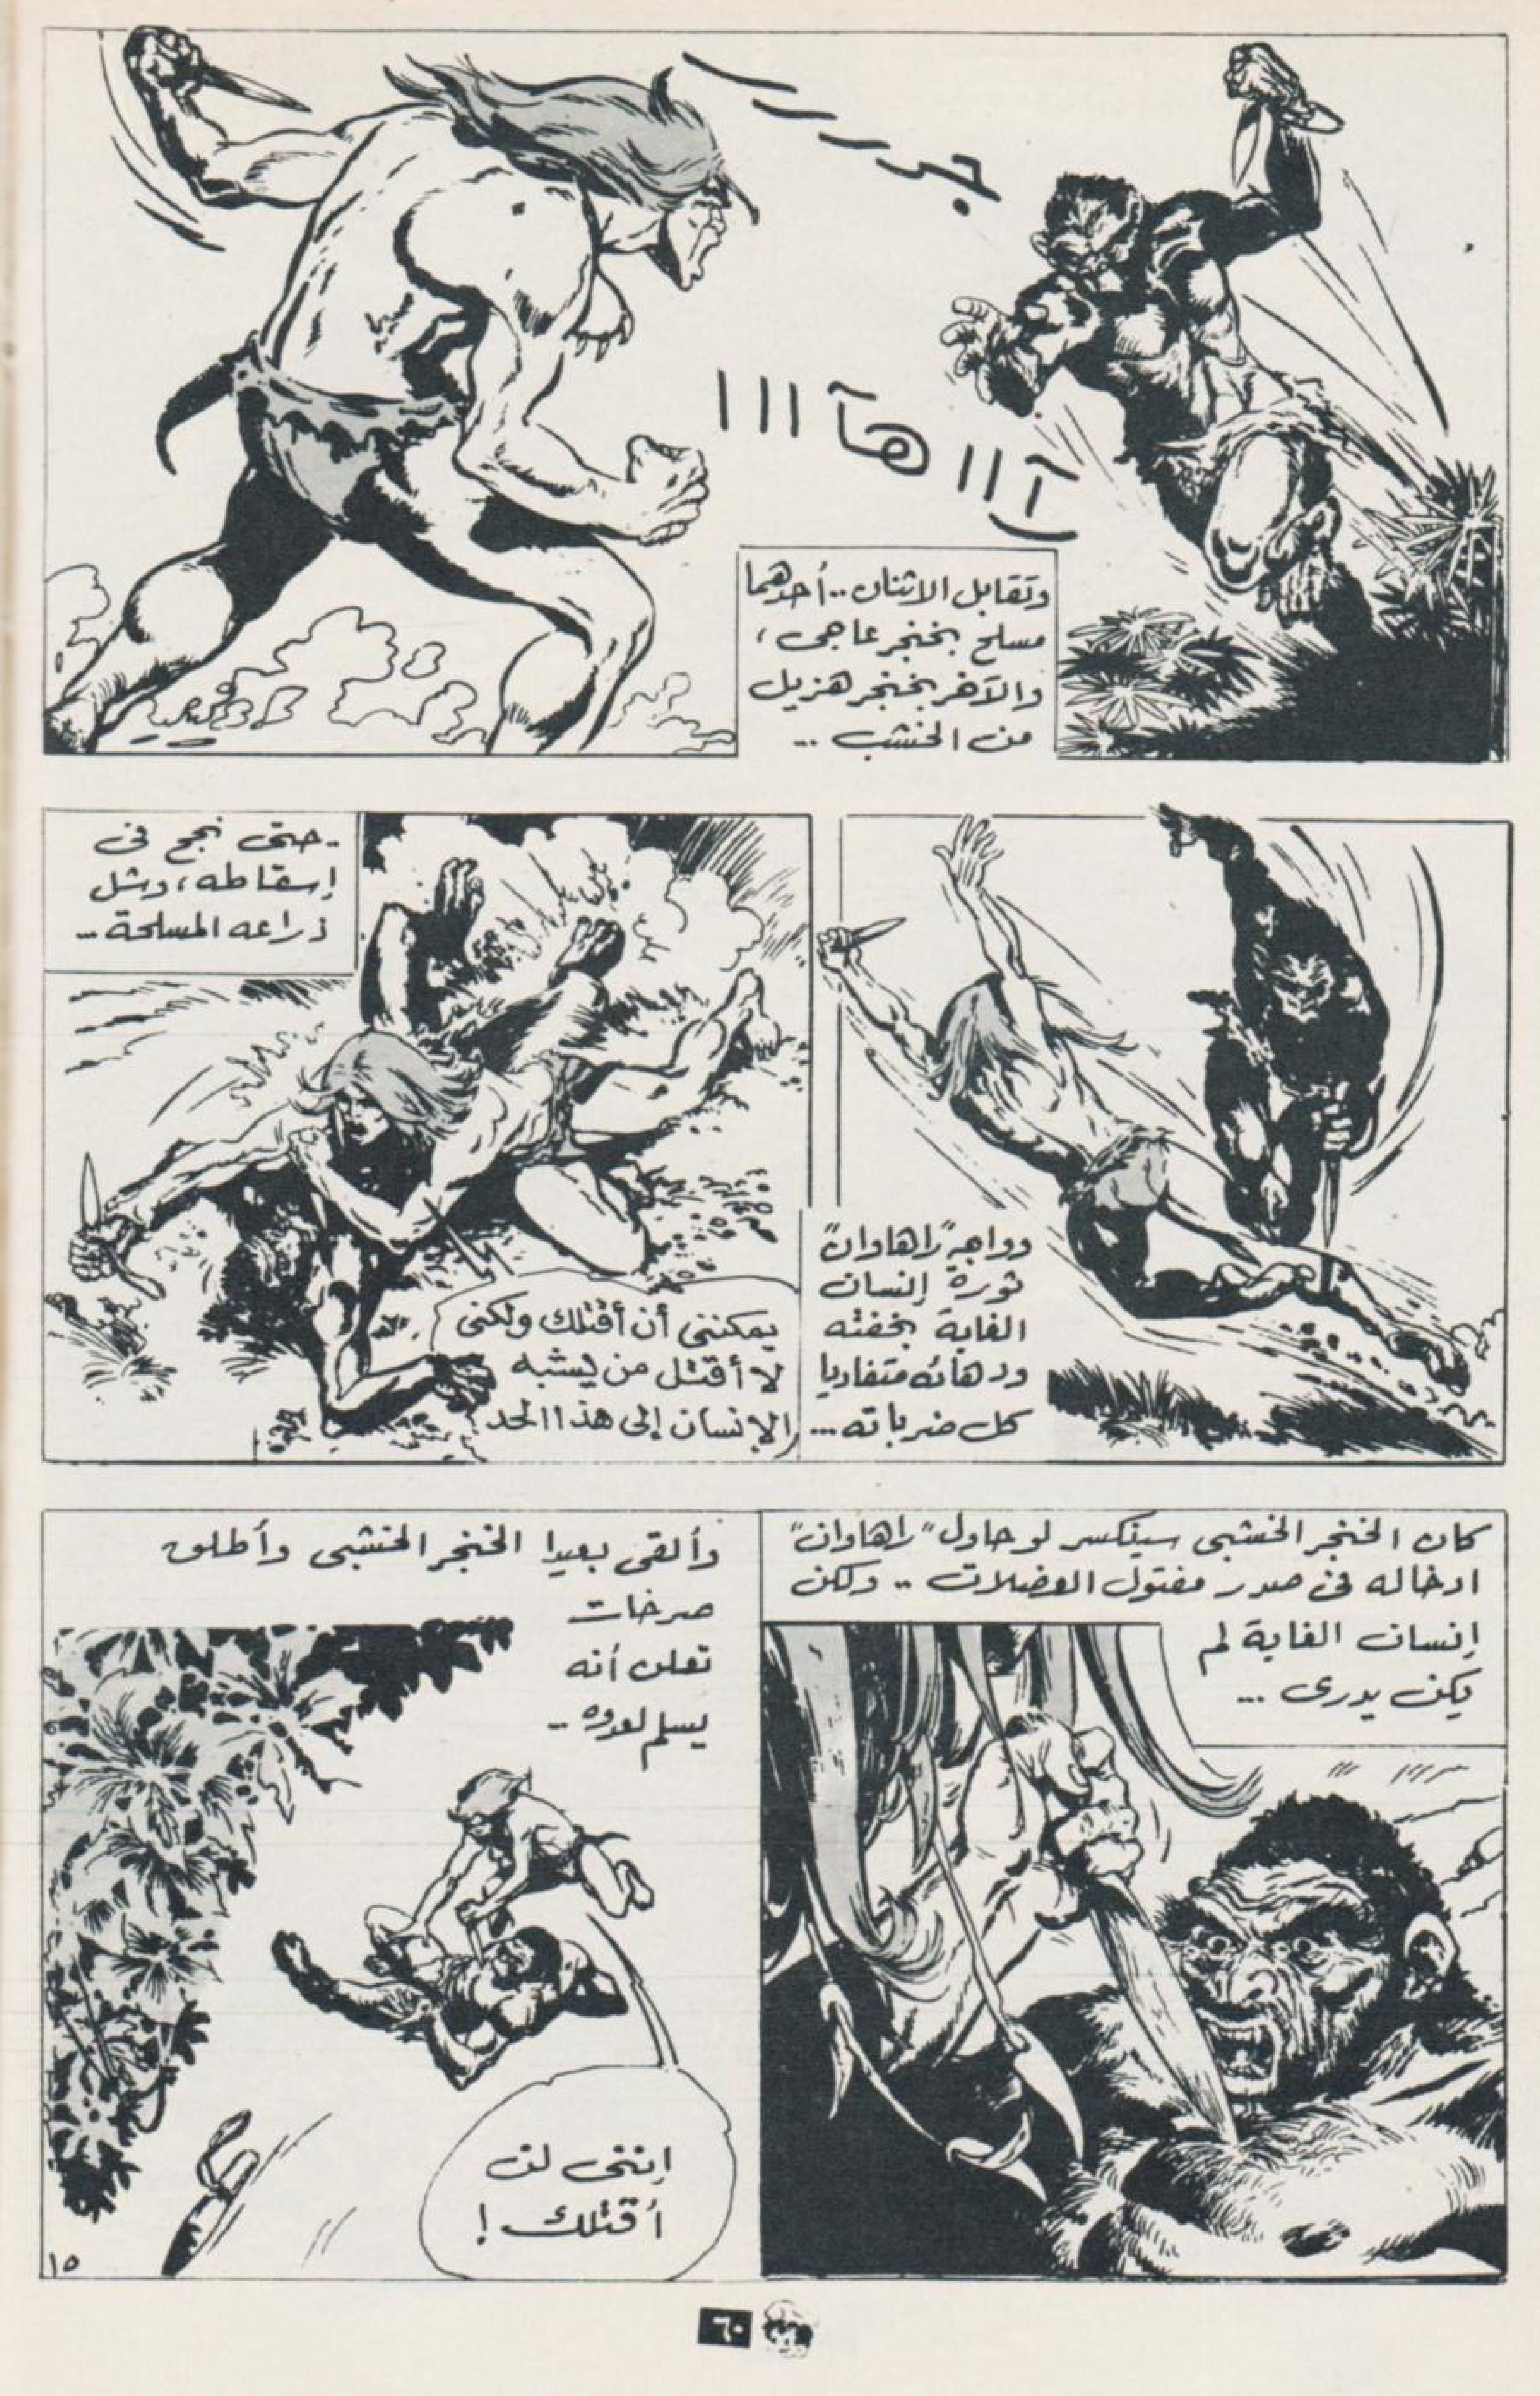 جررررر
آااا هآ ااا
وتقابل الاثنان.. أحدهما
مسلح بخنجر عاجى،
والآخر بخنجر هزيل
من الخشب ..
وواجه "راهاوان"
ثورة إنسان
الغابة بخفته
ودهائه متفاديا
كل ضرباته...
.. حتى نجح فى
إسقاطه، وشل
ذراعه المسلحة ..
يمكننى أن أقتلك ولكنى
لا أقتل من يشبه
الإنسان إلى هذا الحد
كان الخنجر الخشبى سينكسر لو حاول "راهاوان"
ادخاله فى صدر مفتول العضلات .. ولكن
إنسان الغابة لم
يكن يدرى ...
وألقى بعيدا الخنجر الخشبى وأطلق
صرخات
تعلن أنه
يسلم لعدوه ..
إننى لن
أقتلك !
١٥
٦٠